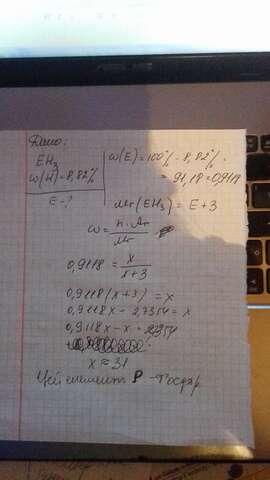 Дано:
EH₃
ω(H) = 8,82%
E - ?
ω(E) = 100% - 8,82% =
= 91,18 = 0,9118
Mr(EH₃) = E + 3
ω = n·Ar / Mr
0,9118 = x / x+3
0,9118(x+3) = x
0,9118x - 2,7354 = x
0,9118x - x = 2,7354
x ≈ 31
Цей елемент P - Фосфор